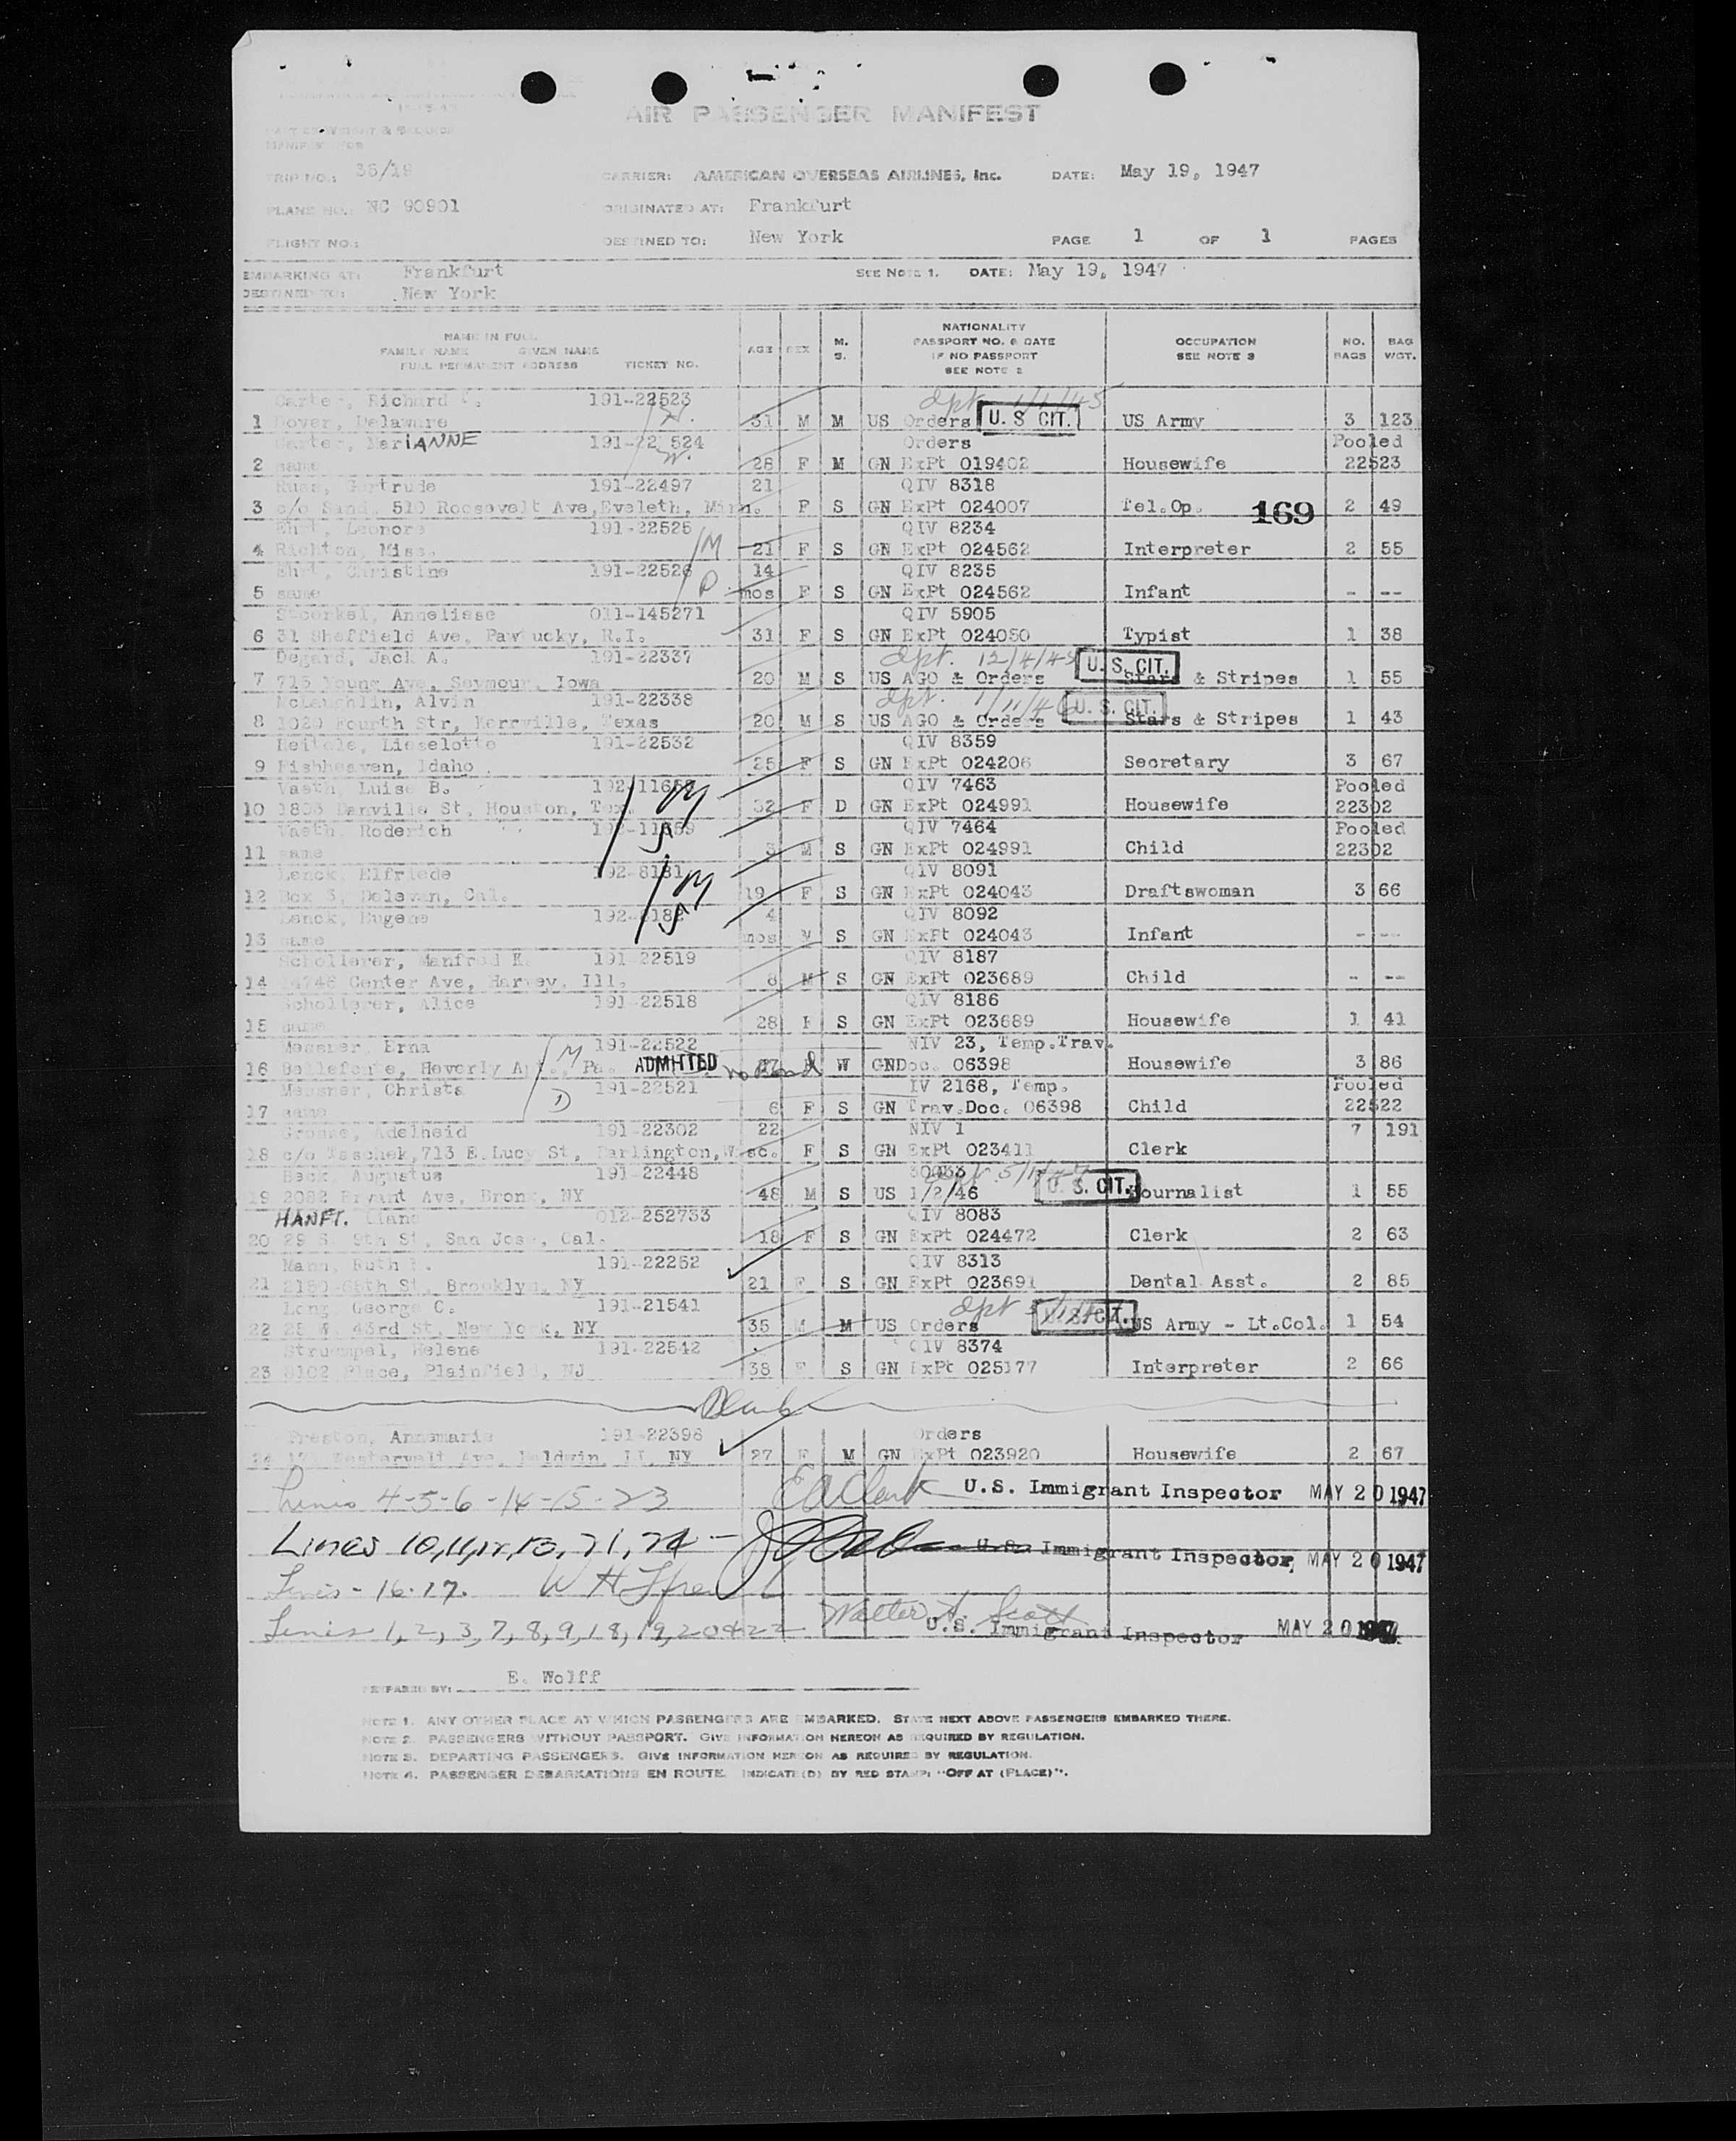 AIR PASSENGER MANIFEST
TRIP NO.: 35/19 CARRIER: AMERICAN OVERSEAS AIRLINES, Inc. DATE: May 19, 1947
PLANE NO.: NC 90901 ORIGINATED AT: Frankfurt
FLIGHT NO.: DESTINED TO: New York PAGE 1 OF 1 PAGES
EMBARKING AT: Frankfurt SEE NOTE 1. DATE: May 19, 1947
DESTINED TO: New York
NAME IN FULL
FAMILY NAME GIVEN NAME
FULL PERMANENT ADDRESS TICKET NO. AGE SEX M. S. NATIONALITY PASSPORT NO. & DATE IF NO PASSPORT SEE NOTE 2 OCCUPATION SEE NOTE 3 NO. BAGS BAG WGT.
Carter, Richard 191-22523
1 Dover, Delaware 31 M M US Orders U. S CIT. US Army 3 123
Carter, MariANNE 191-22524 Orders Pooled
2 same 28 F M GN ExPt 019402 Housewife 22523
Russ, Gertrude 191-22497 21 QIV 8318
3 c/o Sand. 510 Roosevelt Ave, Eveleth, Minn. F S GN ExPt 024007 Tel.Op. 169 2 49
Ehrt, Leonore 191-22525 QIV 8234
4 Richton, Miss. M 21 F S GN ExPt 024562 Interpreter 2 55
Ehrt, Christine 191-22526 14 QIV 8235
5 same D mos F S GN ExPt 024562 Infant - --
Anneliese 011-145271 QIV 5905
6 31 Sheffield Ave, Pawtucky, R.I. 31 F S GN ExPt 024050 Typist 1 38
Degard, Jack A. 191-22337 12/4/45 U. S. CIT.
7 715 Young Ave, Seymour, Iowa 20 M S US AGO & Orders Stars & Stripes 1 55
McLaughlin, Alvin 191-22338 U. S. CIT.
8 1020 Fourth Str, Kerrville, Texas 20 M S US AGO & Orders Stars & Stripes 1 43
Lieselotte 191-22532 QIV 8359
9 Fishheaven, Idaho 25 F S GN ExPt 024206 Secretary 3 67
Vaeth, Luise B. 192-11658 QIV 7463 Pooled
10 Danville St, Houston, Tex. M 32 F D GN ExPt 024991 Housewife 22302
Vaeth, Roderich 192-11659 QIV 7464 Pooled
11 same S 3 M S GN ExPt 024991 Child 22302
Lenck, Elfriede 192-8181 QIV 8091
12 Box 3, Delevan, Cal. M 19 F S GN ExPt 024043 Draftswoman 3 66
Lenck, Eugene 192-8182 4 QIV 8092
13 same S mos M S GN ExPt 024043 Infant - --
Schollerer, Manfred K. 191-22519 QIV 8187
14 14746 Center Ave, Harvey, Ill. 8 M S GN ExPt 023689 Child - --
Schollerer, Alice 191-22518 QIV 8186
15 same 28 F S GN ExPt 023689 Housewife 1 41
Messner, Erna 191-22522 NIV 23, Temp.Trav.
16 Bellefonte, Heverly Apt., Pa. M ADMITTED no Bond W GN Doc. 06398 Housewife 3 86
Messner, Christa 191-22521 IV 2168, Temp. Pooled
17 same D 6 F S GN Trav.Doc. 06398 Child 22522
Adelheid 191-22302 22 NIV 1 7 191
18 c/o Raschek, 713 E. Lucy St, Darlington, Wisc. F S GN ExPt 023411 Clerk
Beck, Augustus 191-22448
19 2082 Bryant Ave, Bronx, NY 48 M S US 1/2/46 U. S. CIT. Journalist 1 55
HANFT. 012-252733 QIV 8083
20 29 S. 9th St, San Jose, Cal. 18 F S GN ExPt 024472 Clerk 2 63
Mann, Ruth 191-22262 QIV 8313
21 2150-68th St, Brooklyn, NY 21 F S GN ExPt 023691 Dental Asst. 2 85
Long, George C. 191-21541
22 25 W. 43rd St, New York, NY 35 M M US Orders US Army - Lt.Col. 1 54
Struempel, Helene 191-22542 QIV 8374
23 8102 Place, Plainfield, NJ 38 F S GN ExPt 025177 Interpreter 2 66
Blank
Preston, Annamarie 191-22396 Orders
24 Westervelt Ave, Baldwin, LI, NY 27 F M GN ExPt 023920 Housewife 2 67
Lines 4-5-6-14-15-23 E A Clark U.S. Immigrant Inspector MAY 20 1947
Lines 10,11,12,13,21,24 - U.S. Immigrant Inspector, MAY 20 1947
Lines - 16.17.
Lines 1,2,3,7,8,9,18,19,20+22 Walter A. Scott U.S. Immigrant Inspector MAY 20
PREPARED BY: E. Wolff
NOTE 1. ANY OTHER PLACE AT WHICH PASSENGERS ARE EMBARKED. STATE NEXT ABOVE PASSENGERS EMBARKED THERE.
NOTE 2. PASSENGERS WITHOUT PASSPORT. GIVE INFORMATION HEREON AS REQUIRED BY REGULATION.
NOTE 3. DEPARTING PASSENGERS. GIVE INFORMATION HEREON AS REQUIRED BY REGULATION.
NOTE 4. PASSENGER DEBARKATIONS EN ROUTE. INDICATE(D) BY RED STAMP: "OFF AT (PLACE)".